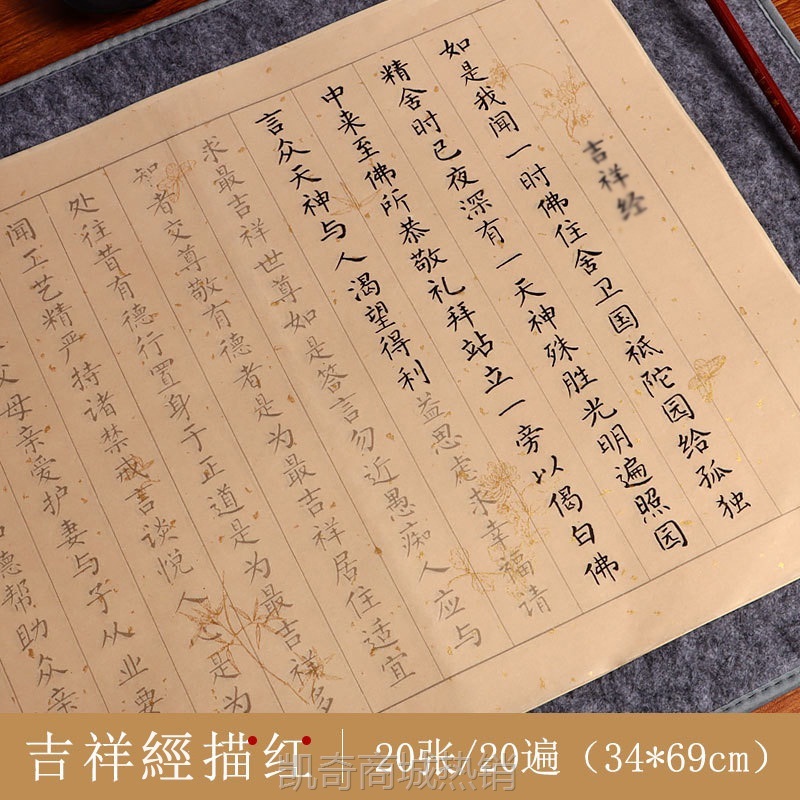 吉祥经
如是我闻一时佛住舍卫国祇陀园给孤独
精舍时已夜深有一天神殊胜光明遍照园
中来至佛所恭敬礼拜站立一旁以偈白佛
言众天神与人渴望得利益思虑求幸福请
求最吉祥世尊如是答言勿近愚痴人应与
知者交尊敬有德者是为最吉祥居住适宜
处往昔有德行置身于正道是为最吉祥多
闻工艺精严持诸禁戒言谈悦人心是为
父母亲爱护妻与子从业要
德帮助众亲
吉祥經描红 20张/20遍（34*69cm）
凯奇商城热销